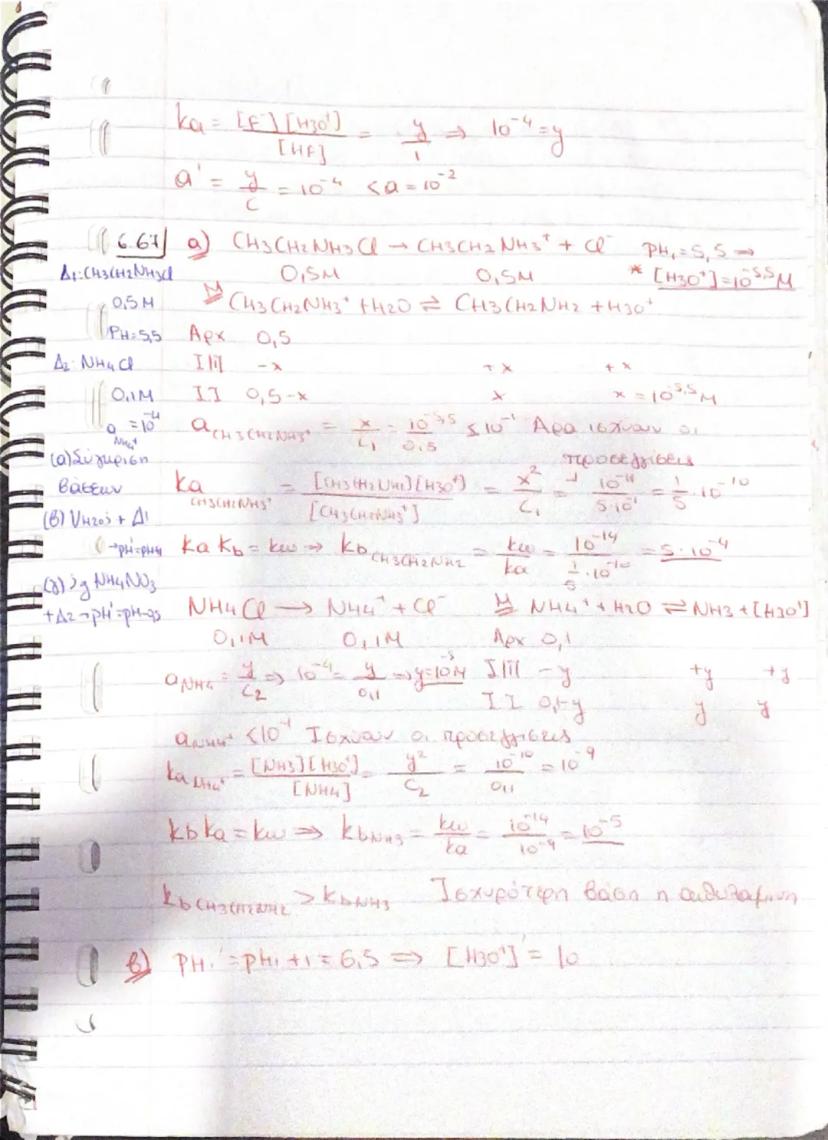 ka = [F⁻][H3O⁺] / [HF] = y/1 ⇒ 10⁻⁴ = y
a' = y/C = 10⁻⁴ < a = 10⁻²
6.67 α) CH3CH2NH3Cl → CH3CH2NH3⁺ + Cl⁻ PH₁ = 5,5 ⇒
Δ₁: CH3CH2NH3Cl 0,5M 0,5M * [H3O⁺] = 10⁻⁵·⁵ M
0,5M M CH3CH2NH3⁺ + H2O ⇌ CH3CH2NH2 + H3O⁺
PH = 5,5 Αρχ 0,5
Δ₂: NH4Cl Ι|Π -x +x +x
0,1M Ι.Ι 0,5-x x x = 10⁻⁵·⁵ M
a NH4⁺ = 10⁻⁴ a CH3CH2NH3⁺ = x/C₁ = 10⁻⁵·⁵/0,5 ≤ 10⁻¹ Αρα ισχυουν οι
(α) Σύγκριση προσεγγίσεις
βάσεων ka CH3CH2NH3⁺ = [CH3CH2NH2][H3O⁺] / [CH3CH2NH3⁺] = x²/C₁ = 10⁻¹¹/5·10⁻¹ = 1/5 · 10⁻¹⁰
(β) VH2O; + Δ1
→ pH' = pH+1 ka kb = kw ⇒ kb CH3CH2NH2 = kw/ka = 10⁻¹⁴ / 1/5·10⁻¹⁰ = 5·10⁻⁴
(γ) ;g NH4NO3
+ Δ2 → pH' = pH-0,5 NH4Cl → NH4⁺ + Cl⁻ M NH4⁺ + H2O ⇌ NH3 + [H3O⁺]
0,1M 0,1M Αρχ 0,1
a NH4 = y/C₂ ⇒ 10⁻⁴ = y/0,1 ⇒ y = 10⁻⁵ M Ι|Π -y +y +y
Ι.Ι 0,1-y y y
a NH4⁺ < 10⁻¹ Ισχυουν οι προσεγγίσεις
ka NH4⁺ = [NH3][H3O⁺] / [NH4] = y²/C₂ = 10⁻¹⁰/0,1 = 10⁻⁹
kb ka = kw ⇒ kb NH3 = kw/ka = 10⁻¹⁴/10⁻⁹ = 10⁻⁵
kb CH3CH2NH2 > kb NH3 Ισχυρότερη βάση η αιθυλαμίνη
β) PH₁' = pH₁ + 1 = 6,5 ⇒ [H3O⁺]' = 10